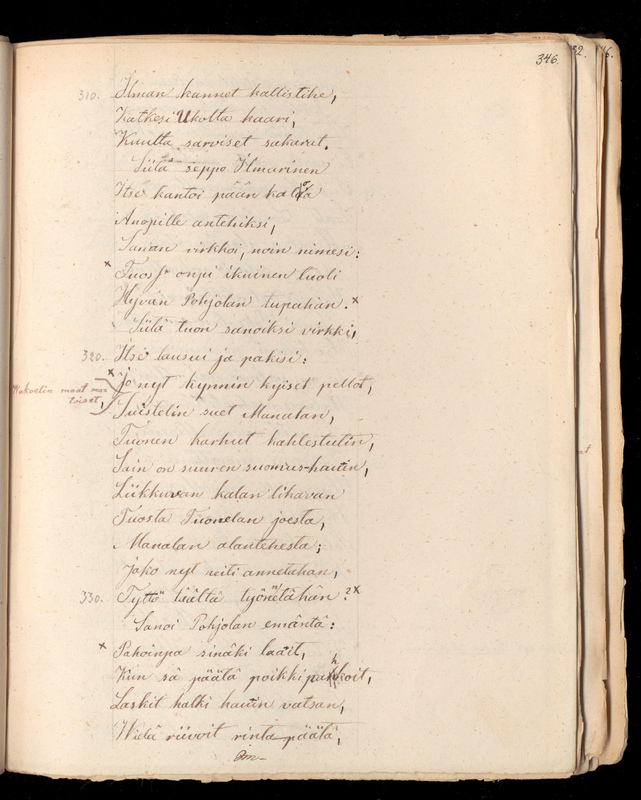 346.
310. Ilman kannet kallistihe,
Katkesi Ukolta kaari,
Kuulta sarviset sakarat.
Siitä seppo Ilmarinen
Itse kantoi pään kaloa
Anopille antehiksi,
Sanan virkkoi, noin nimesi:
× Tuoss' onpi ikuinen tuoli
Hyvän Pohjolan tupahan. ×
Siitä tuon sanoiksi virkki,
320. Itse lausui ja pakisi:
× Jo nyt kynnin kyiset pellot,
Wakoelin maat matoiset,
Suistelin suet Manalan,
Tuonen karhut kahlestutin,
Sain on suuren suomus-hauin,
Liikkuvan kalan lihavan
Tuosta Tuonelan joesta,
Manalan alantehesta;
Joko nyt neiti annetahan,
330. Tyttö täältä työnnetähän? ×
Sanoi Pohjolan emäntä:
× Pahoinpa sinäki laait,
Kun sä päätä poikki puhkoit,
Laskit halki hauin vatsan,
Wielä riivoit rintapäätä,